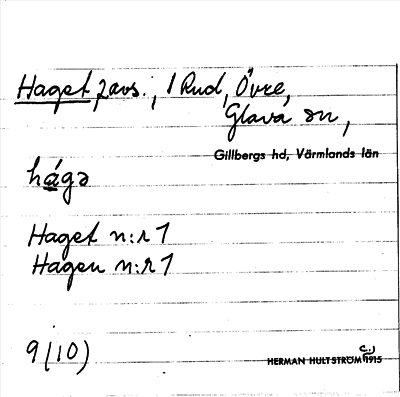 Haget, 2 avs., 1 Rud, Övre,
Glava sn,
Gillbergs hd, Värmlands län
hágə
Haget n:r 1
Hagen n:r 1
9(10)
HERMAN HULTSTRÖM c. 1915